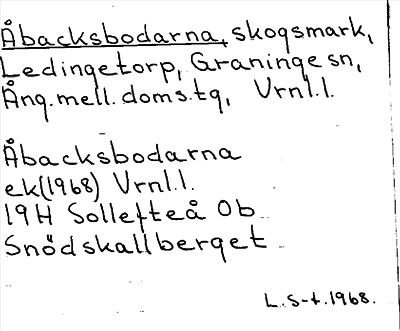 Åbacksbodarna, skogsmark,
Ledingetorp, Graninge sn,
Ång.mell.doms.tg, Vrnl.l.
Åbacksbodarna
ek(1968) Vrnl.l.
19H Sollefteå 0b
Snödskallberget
L.S-t.1968.